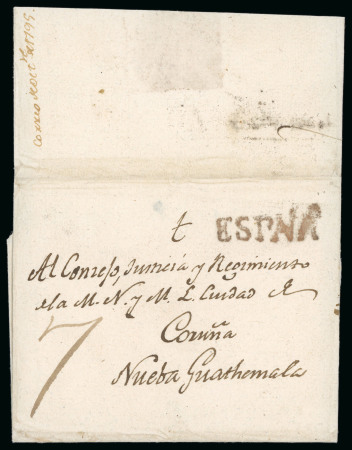 Correo de Dic.re de 1795.
t
ESPAÑA
Al Concejo, Justicia y Regimiento
de la M. N. y M. L. Ciudad de
Coruña
Nueba Guathemala
7